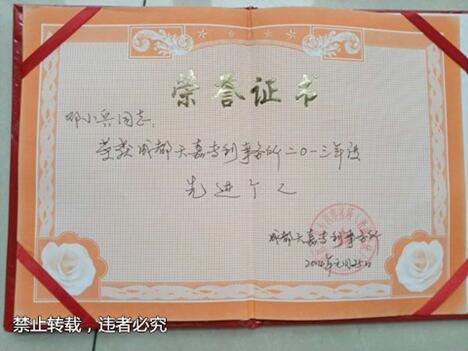 荣誉证书
邓小兵同志：
荣获成都天嘉专利事务所二0一三年度
先进个人
成都天嘉专利事务所
2014年元月25日
禁止转载，违者必究